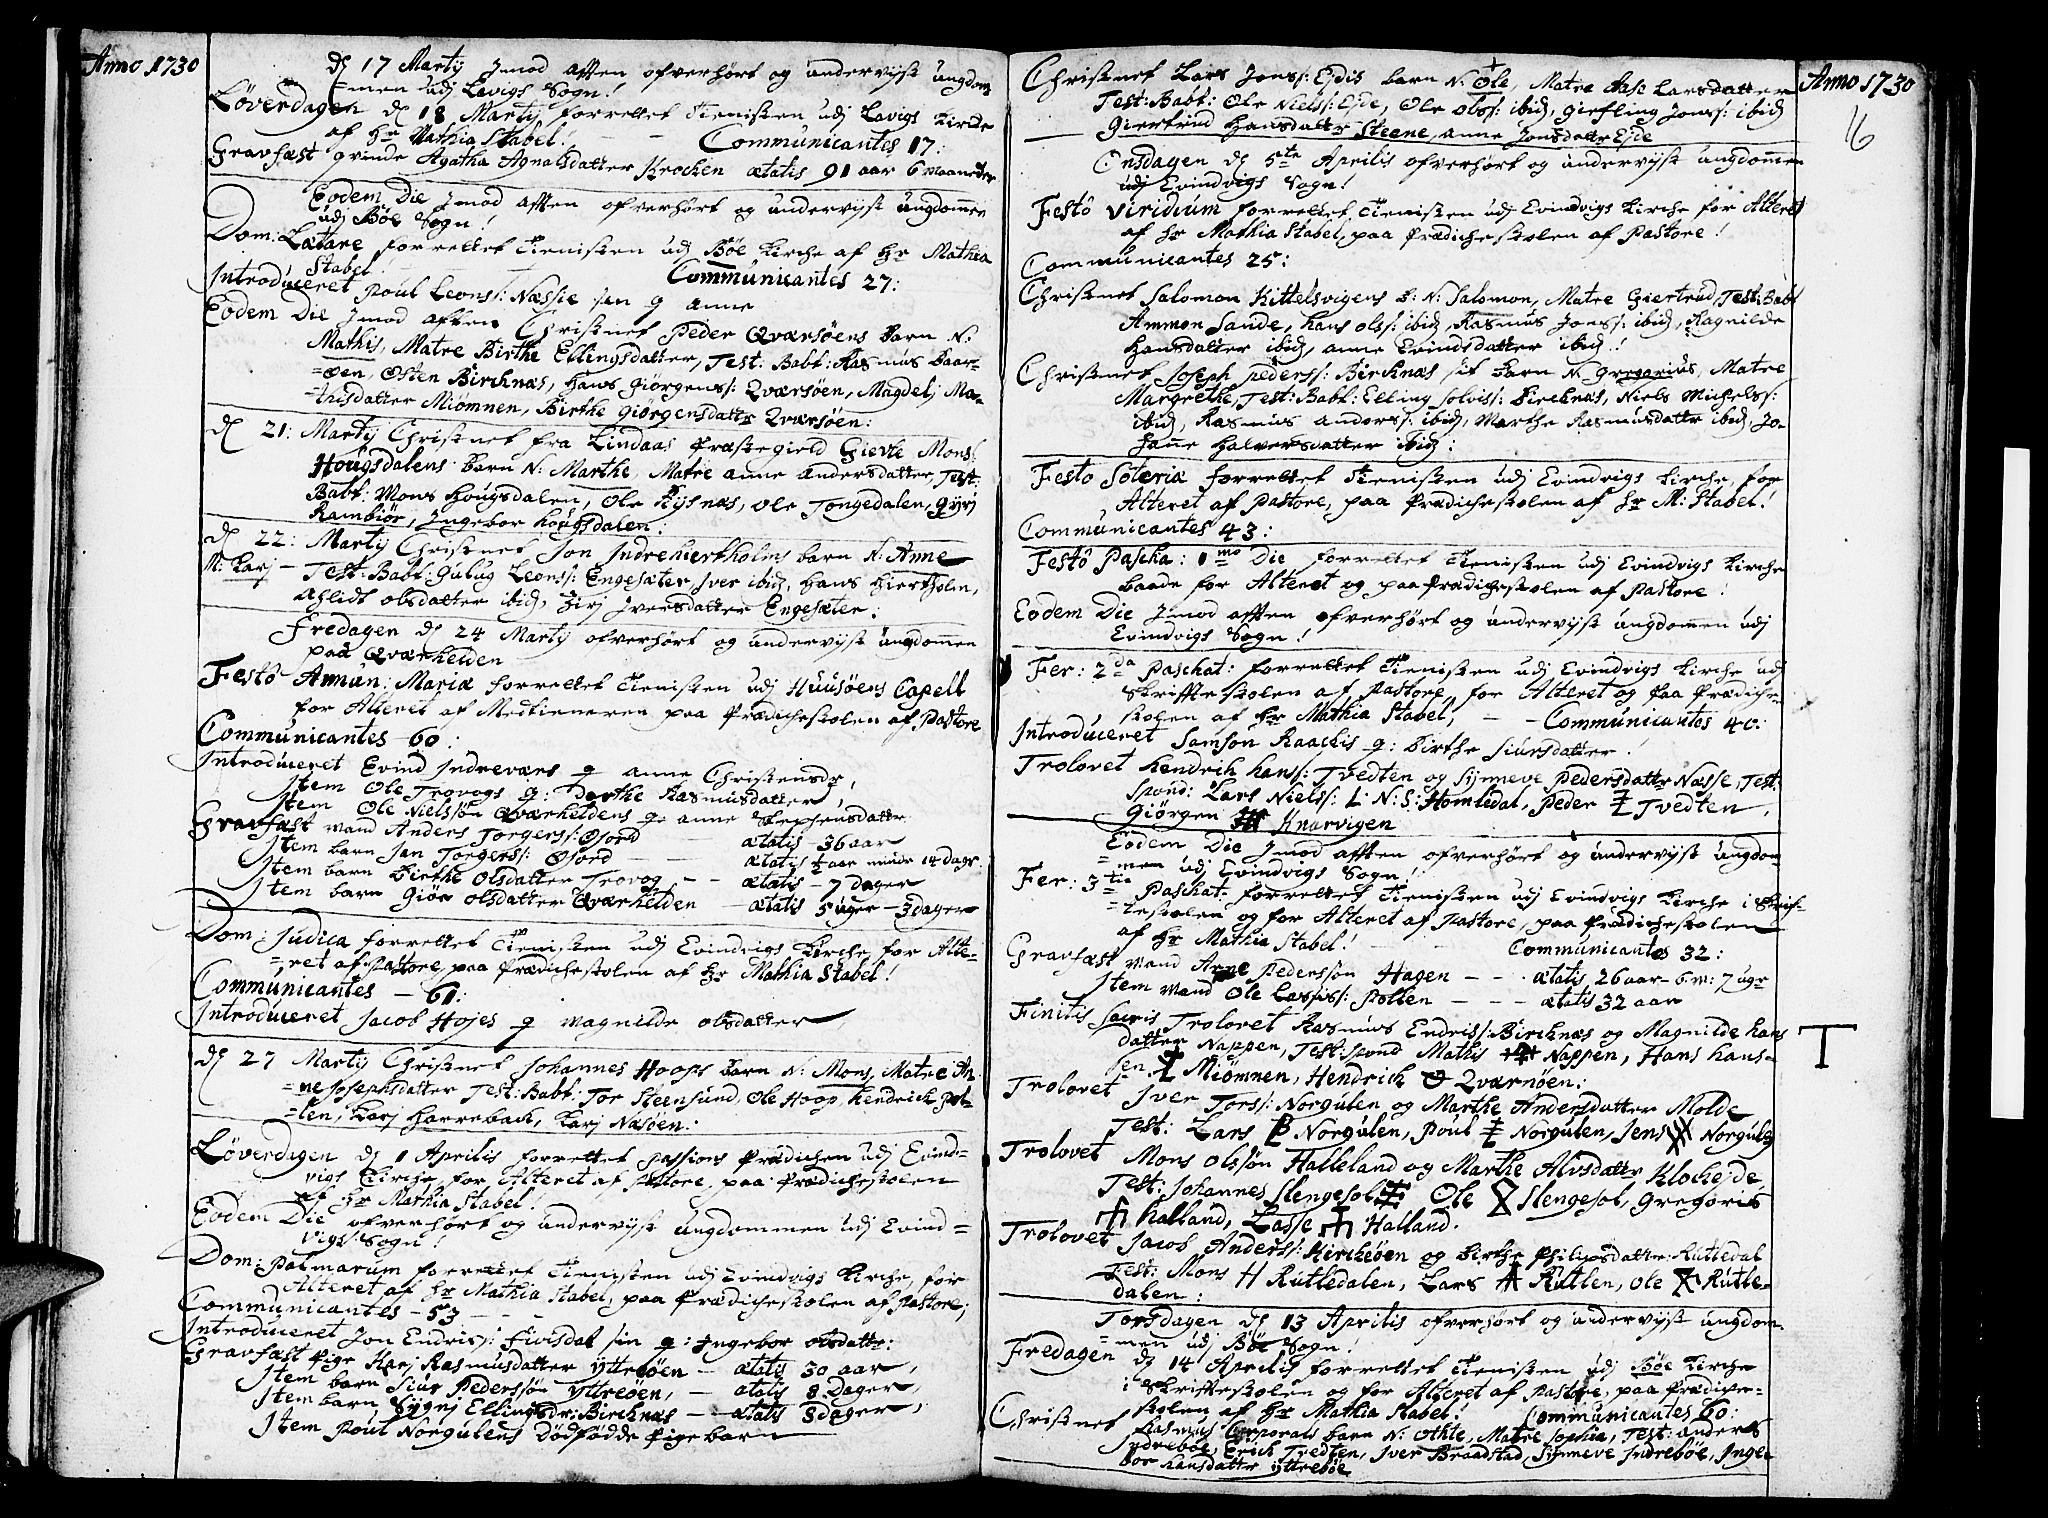 Anno 1730
dj 17 Martij Jmod afften ofverhørt og andervijst ungdom
=men udj Lavigs Sogn!
Løverdagen dj 18 Martij forrettet Tienisten udj Lavigs Kircke
af Hr Mathia Stabel! Communicantes 17:
Gravfæst qvinde Agatha Agnalsdatter Krocken ætatis 91 aar 6 maaneder
Eodem Die Jmod afften ofverhørt og andervijst ungdommen
udj Bøe Sogn!
Dom: Lætare forrettet Tienisten udj Bøe Kirche af Hr Mathia
Stabel! Communicantes 27:
Introduceret Poul Leons: Næssie sin q anne
Eodem Die Jmod aften Christnet Peder Qværsøens barn N:
Mathis, Matre Birthe Ellingsdatter, Test: Babt: Rasmus Baar-
=øen, Østen Bircknæs, Hans Giørgens: Qværsøen, Magdelj Ma-
=thisdatter Miømnen, Birthe Giørgensdatter Qværsøen:
dj 21: Martij Christnet fra Lindaas Præstegield Gievle Mons:
Hougsdalens barn N: Marthe, Matre anne andersdatter, Test:
Babt: Mons Hougsdalen, Ole Rysnæs, Ole Tongedalen, Gyrj
Rambiør, Ingebor Hougsdalen:
dj 22: Martij Christnet Jon Indrehiertholms barn N: Anne
M: Karj - Test: Babt: Gulug Leons: Engesæter, Iver ibid, Hans Hiertholm,
Aslidt olsdatter ibid, Sirj Iversdatter Engesæter:
Fredagen dj 24 Martij ofverhørt og andervijst ungdommen
paa Qværhelden
Festô Annun: Mariæ forrettet Tienisten udj Huusøens Capell
for Alteret af Medtieneren paa Prædichestolen af Pastore
Communicantes 60:
Introduceret Evind Indreværs q anne Christensdr,
Item Ole Trovogs q: Dorthe Rasmusdatter,
Item Ole Nielssøn Qværheldens q: anne Stephensdatter
Gravfæst mand Anders Torgers: Ofiord ætatis 36 aar
Item barn Jan Torgers: Ofiord - - ætatis ½ aar minde 14 dagr:
Item barn Birthe Olsdatter Trovog - - ætatis - 7 dager
Item barn Giør olsdatter Qværhelden - ætatis 5 uger - 3 dager
Dom: Judica forrettet Tienisten udj Evindvigs Kirche for Alte-
=ret af Pastore, paa Prædichestolen af Hr Mathia Stabel!
Communicantes - 61:
Introduceret Jacob Hojes q Magnilde olsdatter,
dj 27 Martij Christnet Johannes Hoops barn N: Mons, Matre An-
=ne Josephsdatter Test: Babt: Tor Steensund, Ole Hoop, Hendrich Pol-
=len, Karj Harreback, Karj Nasøen:
Løverdagen dj 1 Aprilis forrettet Passions Prædichen udj Evind-
vigs Kirche, for Alteret af Pastore, paa Prædichestolen
af Hr Mathia Stabel!
Eodem Die ofverhørt og andervijst ungdommen udj Evind=
vigs Sogn!
Dom: Palmarum forrettet Tienisten udj Evindvigs Kirche, for
Alteret af Hr Mathia Stabel, paa Prædichestolen af Pastore,
Communicantes - 53 - -
Introduceret Jon Endris: Fivisdal sin q: Ingebor olsdattr:
Gravfæst Pige Karj Rasmusdatter Ytterøen - ætatis 30 aar,
Item barn Siur Pederssøn Yttreøen, - ætatis 8 Dager,
Item barn Sygnj Ellingsdr: Bircknæs - ætatis 3 dager,
Item Poul Norgulens Dødfødde Pigebarn
Anno 1730
16
Christnet Lars Jons: Ejdis barn N: Ole, Matre Aase Larsdatter
Test: Babt: Ole Niels: Ejde, Ole ols: ibid, Giefling Jons: ibid
Giertrud Hansdatter Steene, anne Jonsdatter Ejde
Onsdagen dj 5te Aprilis ofverhørt og andervijst ungdommen
udj Evindvigs Sogn!
Festô Viridium forrettet Tienisten udj Evindvigs Kirche for Alteret
af Hr Mathia Stabel, paa Prædichestolen af Pastore!
Communicantes 25:
Christnet Salomon Kittelsvigens b: N: Salomon, Matre Giertrud, Test: Babt
Ammon Sande, Hans ols: ibid, Rasmus Jons: ibid, Ragnilde
Hansdatter ibid, anne Evindsdatter ibid!
Christnet Joseph Peders: Bircknæs sit barn N: Gregorius, Matre
Margrethe, Test: Babt: Elling Solvis: Bircknæs, Niels Michels:
ibid, Rasmus Anders: ibid, Marthe Rasmusdatter ibid, Jo-
hanne Halversdatter ibid:
Festo Soteriæ forrettet Tienisten udj Evindvigs Kirche, for
Alteret af Pastore, paa Prædichestolen af Hr M: Stabel!
Communicantes 43:
Festô Pascha: 1mo Die forrettet Tienisten udj Evindvigs Kirche
baade for Alteret og paa Prædichestolen af Pastore!
Eodem Die Jmod afften ofverhørt og andervijst ungdommen udj
Evindvigs Sogn!
Fer: 2da Paschat: forrettet Tienisten udj Evindvigs Kirche udj
Skriffte stolen af Pastore, for Alteret og paa Prædiche-
stolen af Hr Mathia Stabel, - - Communicantes 40:
Introduceret Samson Raackis q: Birthe Siursdatter!
Trolovet Hendrich Hans: Tvedten og Synneve Pedersdatter Næsse, Test:
Spond: Lars Niels: L: N: S: Homledal, Peder Tvedten,
Giørgen Knarvigen
Eodem Die Jmod afften ofverhørt og andervijst ungdom-
=men udj Evindvigs Sogn!
Fer: 3tia Paschat: forrettet Tienisten udj Evindvigs Kirche i Skrif-
=testolen og for Alteret af Pastore, paa Prædichestolen
af Hr Mathia Stabel! Communicantes 32:
Gravfæst mand Arne Pederssøn Hagen - - ætatis 26 aar - 6 m: 7 ugr
Item mand Ole Lassis: Pollen - - - ætatis 32 aar
Finitis Sacris Trolovet Rasmus Endris: Bircknæs og Magnilde Hans
datter Nappen, Test: Spond Mathis Nappen, Hans Hans-
sen Miømnen, Hendrich Qværnøen:
Trolovet Iver Tors: Norgulen og Marthe Andersdatter Molde
Test: Lars Norgulen, Poul Norgulen, Jens Norgulen
Trolovet Mons Olssøn Halleland og Marthe Alvsdatter Klockejde,
Test: Johannes Slengesol Ole Slengesol, Gregoris
Halland, Lasse Halland.
Trolovet Jacob Anders: Kirckeøen og Birthe Philipsdatter Rutledal
Test: Mons Rutledalen, Lars Rutlen, Ole Rutle-
dalen:
Torsdagen dj 13 Aprilis ofverhørt og andervijst ungdom-
=men udj Bøe Sogn!
Fredagen dj 14 Aprilis forrettet Tienisten udj Bøe Kirche
i Skrifftestolen og for Alteret af Pastore, paa Prædiche-
stolen af Hr Mathia Stabel! Communicantes
Christnet Rasmus Corporals barn N: Othte, Matre Sophia, Test: anders
Indrebøe, Erich Tvedten, Iver Braadstad, Synneve Indrebøe, Inge-
bor Hansdatter Yttrebøe
T